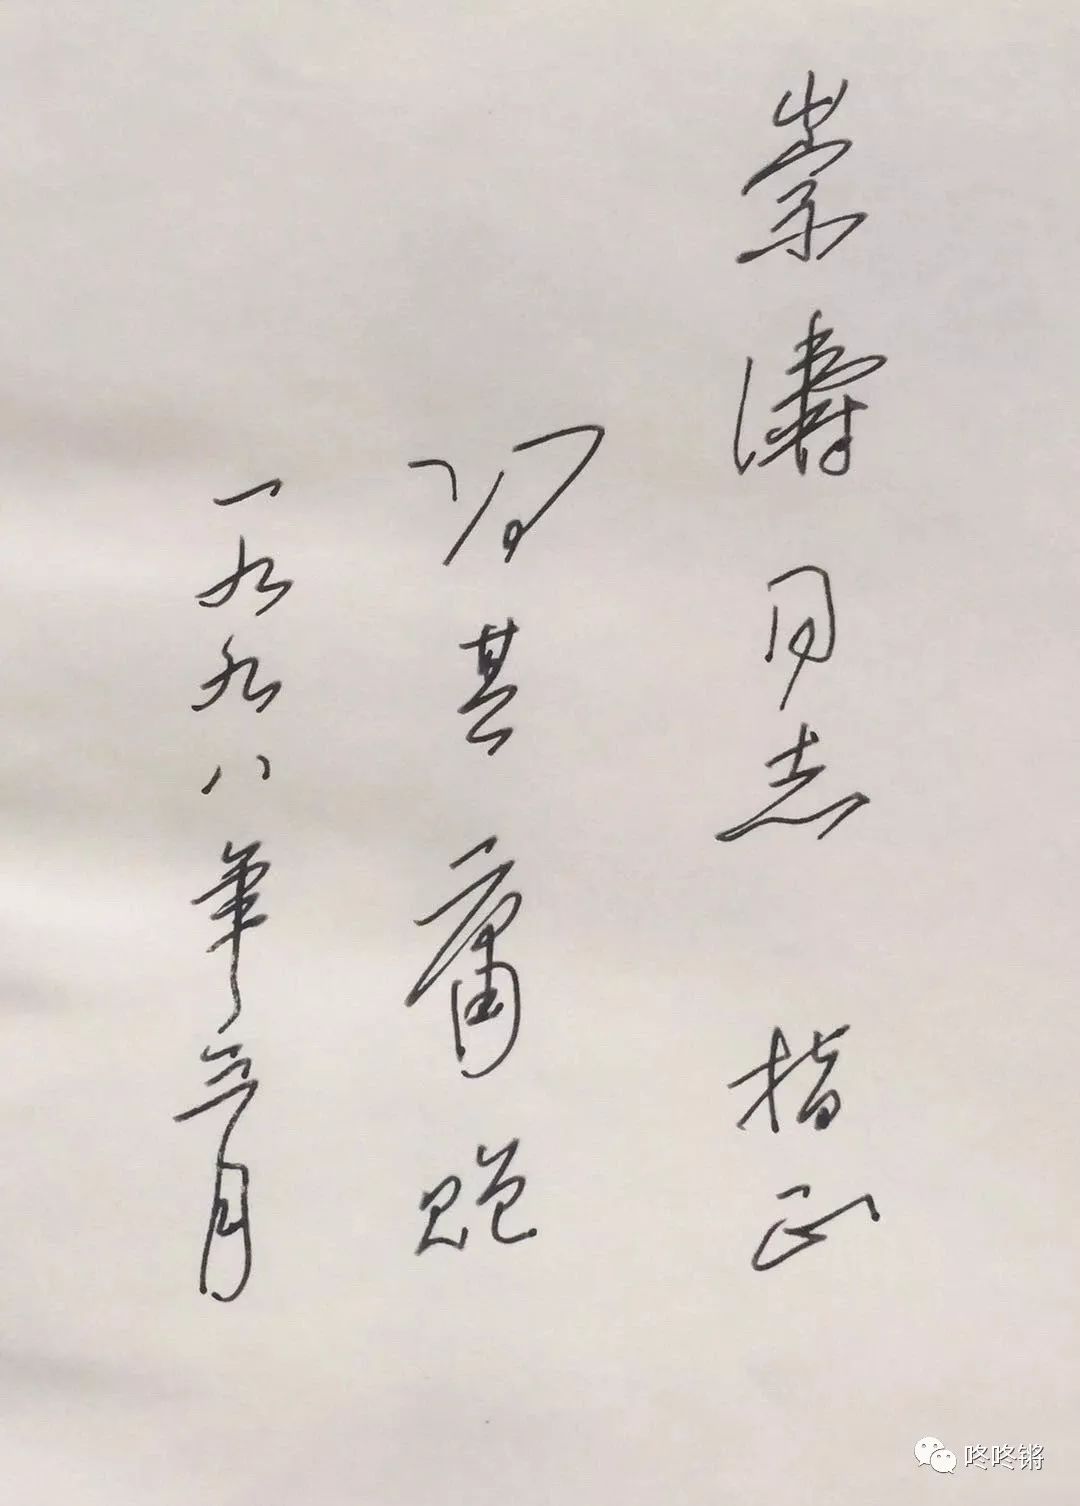 崇涛同志 指正
冯其庸赠
一九九八年三月
咚咚锵